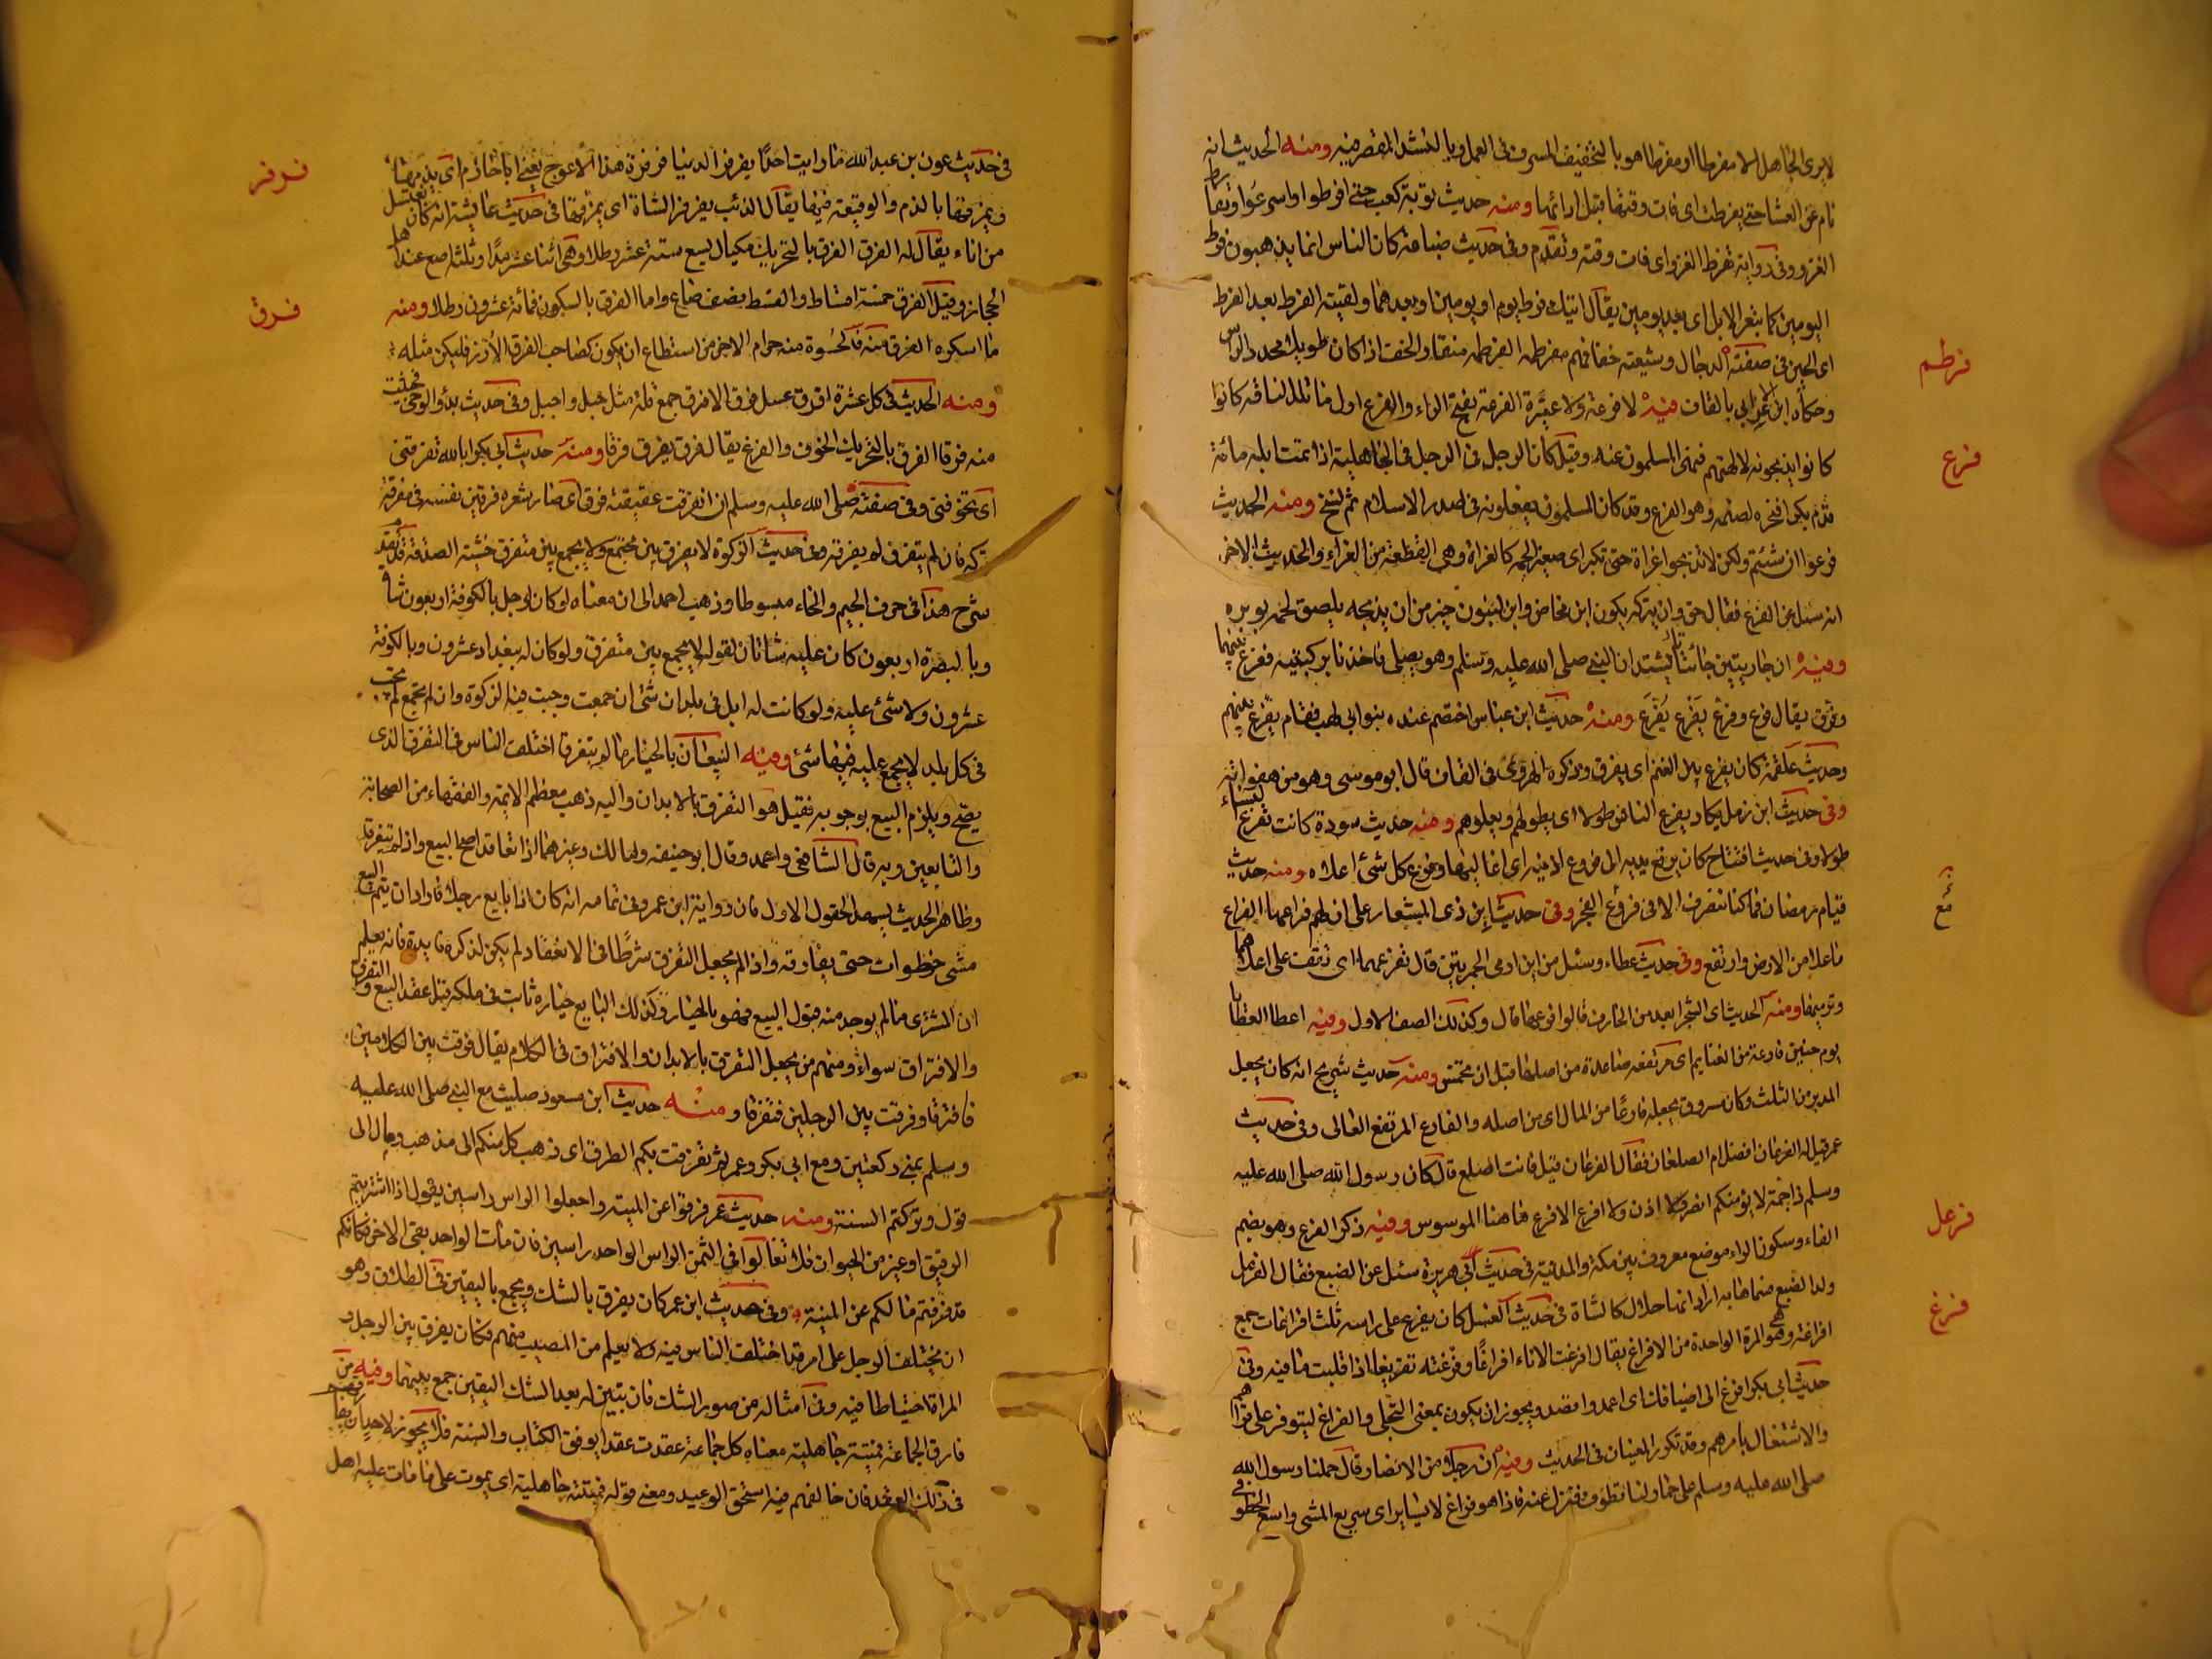 لا يرى الجاهل الا مفرطا او مفرطا هو بالتخفيف المسرف فى العمل وبالتشديد المقصر فيه ومنه الحديث انه
نام عن العشا حتى يفرطت اى فات وقتها قبل ادائها ومنه حديث توبة كعب حتى افرطوا واسرعوا وتفارط
الغزو وفى رواية تفرط الغزو اى فات وقته وتقدم وفى حديث ضباعة كان الناس انما يذهبون فرط
اليومين كما تبعر الابل اى بعد يومين يقال اتيتك فرط يوم او يومين او بعدهما ولقيته الفرط بعد الفرط
فرطم
اى الحين فى صفة الدجال وشيعته خفافهم مفرطمة الفرطمة منقار الخف اذا كان طويلا محدد الراس
وحكاه ابن الاعرابى بالقاف فيه لا فرعة ولا عتيرة الفرعة بفتح الراء والفرع اول ما تلد الناقة كانوا
فرع
كانوا يذبحونه لالهتهم فنهى المسلمون عنه وقيل كان الرجل فى الجاهلية اذا تمت ابله مائة
قدم بكرا فنحره لصنمه وهو الفرع وقد كان المسلمون يفعلونه فى صدر الاسلام ثم نسخ ومنه الحديث
فرعوا ان شئتم ولكن لا تذبحوا غراة حتى تكبر اى صغير لحمه كالغراة وهى القطعة من الغراء والحديث الاخر
انه سئل عن الفرع فقال حق وان تتركه يكون ابن مخاض وابن لبون خير من ان يذبحه يلصق لحمه بوبره
ومنه ان جاريتين جائتا تشتدان النبى صلى الله عليه وسلم وهو يصلى فاخذتا بركبتيه ففرع بينهما
وفرق يقال فرع وفرع يفرع يفرع ومنه حديث ابن عباس اختصم عنده بنو ابى لهب فقام يفرع بينهم
وحديث علقمة كان يفرع بين الغنم اى يفرق وذكره الهروى فى القاف قال ابو موسى وهو من هفواته
وفى حديث ابن زمل يكاد يفرع الناس طولا اى يطولهم ويعلوهم ومنه حديث سودة كانت تفرع النساء
طولا وفى حديث افتتاح كان يرفع يديه الى فروع اذنيه اى اعاليها وفرع كل شئ اعلاه ومنه حديث
قيام رمضان فما كنا ننصرف الا فى فروع الفجر وفى حديث ابن ذى المشعار على ان لهم فراعها الفراع
ما علا من الارض وارتفع وفى حديث عطاء وسئل من اين ارمى الجمرتين قال تفرعهما اى تقف على اعلاهما
وترميهما ومنه الحديث اى الشجر ابعد من الخارف قالوا فرعها قال وكذلك الصف الاول وفيه اعطا العطايا
يوم حنين فارعة من الغنايم اى مرتفعة صاعدة من اصلها قبل ان تخمس ومنه حديث شريح انه كان يجعل
المدبر من الثلث وكان مسروق يجعله فارعا من المال اى من اصله والفارع المرتفع العالى وفى حديث
عمر قيل له الفرعان افضل ام الصلعان فقال الفرعان قيل فانت اصلع قال كان رسول الله صلى الله عليه
وسلم ذا جمة لا يؤمنكم انصر ولا اذن ولا افرع الافرع هاهنا الموسوس وفيه ذكر الفرع وهو بضم
فرعل
الفاء وسكون الراء موضع معروف بين مكة والمدينة فى حديث ابى هريرة سئل عن الضبع فقال الفرعل
ولد الضبع فسماها به اراد انها حلال كالشاة فى حديث الغسل كان يفرغ على راسه ثلث افراغات جمع
فرغ
افراغة وهى المرة الواحدة من الافراغ يقال افرغت الاناء افراغا وفرغته تفريغا اذا قلبت ما فيه وفى
حديث ابى بكر افرغ الى اضيافك اى اعمد واقصد ويجوز ان يكون بمعنى التخلى والفراغ ليتوفر على قراهم
والاشتغال بامرهم وقد تكرر المعنيان فى الحديث وفيه ان رجلا من الانصار قال حملنا رسول الله
صلى الله عليه وسلم على حمار لنا قطوف فنزل عنه فاذا هو فراغ لا يساير اى سريع المشى واسع الخطو
فرفر
فى حديث عون بن عبد الله ما رايت احدا يفرفر الدنيا فرفرة هذا الاعوج يعنى ابا حازم اى يذمها
ويمزقها بالذم والوقيعة فيها يقال الذئب يفرفر الشاة اى يمزقها فى حديث عائشة انه كان يغتسل
من اناء يقال له الفرق الفرق بالتحريك مكيال يسع ستة عشر رطلا وهى اثنا عشر مدا وثلثة اصع عند اهل
فرق
الحجاز وقيل الفرق خمسة اقساط والقسط نصف صاع واما الفرق بالسكون فمائة عشرون رطلا ومنه
ما اسكره الفرق منه فالحسوة منه حرام الاخر من استطاع ان يكون كصاحب الفرق الارز فليكن مثله
ومنه الحديث فى كل عشرة افرق عسل فرق الافرق جمع قلة مثل جبل واجبل وفى حديث بدؤ الوحى فجئثت
منه فرقا الفرق بالتحريك الخوف والفزع يقال فرق يفرق فرقا ومنه حديث ابى بكر ابالله تفرقنى
اى تخوفنى وفى صفته صلى الله عليه وسلم ان انفرقت عقيقته فرق اى صار شعره فرقتين بنفسه فى مفرقة
تركه فان لم يتفرق لم يفرقه وفى حديث الزكوة لا يفرق بين مجتمع ولا يجمع بين متفرق خشية الصدقة قد تقدم
شرح هذا فى حرف الجيم والخاء مبسوطا وذهب احمد الى ان معناه لو كان لرجل بالكوفة اربعون شاة
وبالبصرة اربعون كان عليه شاتان لقوله لا يجمع بين متفرق ولو كان له ببغداد عشرون وبالكوفة
عشرون ولا شئ عليه ولو كانت له ابل فى بلدان شتى ان جمعت وجبت فيه الزكوة وان لم تجمع لم تجب
فى كل بلد لا يجمع عليه فيها شئ وفيه البيعان بالخيار ما لم يتفرقا اختلف الناس فى التفرق الذى
يصح ويلزم البيع بوجوبه فقيل هو التفرق بالابدان واليه ذهب معظم الائمة والفقهاء من الصحابة
والتابعين وبه قال الشافعى واحمد وقال ابو حنيفة ومالك وغيرهما اذا تعاقدا صح البيع واذ لم يتفرقا
وظاهر الحديث يشهد للقول الاول فان رواية ابن عمر وفى تمامه انه كان اذا بايع رجلا فاراد ان يتم البيع
مشى خطوات حتى يفارقه واذا لم يجعل التفرق شرطا فى الانعقاد لم يكن لذكره فايدة فانه يعلم
ان المشترى ما لم يوجد منه قبول البيع فهو بالخيار وكذلك البايع خياره ثابت فى ملكه قبل عقد البيع والتفرق
والافتراق سواء ومنهم من يجعل التفرق بالابدان والافتراق فى الكلام يقال فرقت بين الكلامين
فافترقا وفرقت بين الرجلين فتفرقا ومنه حديث ابن مسعود صليت مع النبى صلى الله عليه
وسلم بمنى ركعتين ومع ابى بكر وعمر ثم تفرقت بكم الطرق اى ذهب كل منكم الى مذهب ومال الى
قول وتركتم السنة ومنه حديث عمر فرقوا عن المنية واجعلوا الراس راسين يقول اذا اشتريتم
الرقيق او غيره من الحيوان فلا تغالوا فى الثمن الراس الواحد راسين فان مات الواحد بقى الاخر فكانكم
قد فرقتم مالكم عن المنية وفى حديث ابن عمر كان يفرق بالشك ويجمع باليقين فى الطلاق وهو
ان يختلف الرجل على امر قد اختلف الناس فيه ولا يعلم من المصيب منهم فكان يفرق بين الرجل و
المراة احتياطا فيه وفى امثاله من صور الشك فان تبين له بعد الشك اليقين جمع بينهما وفيه من
فارق الجماعة فميتته جاهلية معناه كل جماعة عقدت عقدا يوافق الكتاب والسنة فلا يجوز لاحد ان يفارقهم
فى ذلك العقد فان خالفهم فيه استحق الوعيد ومعنى قوله فميتته جاهلية اى يموت على ما مات عليه اهل